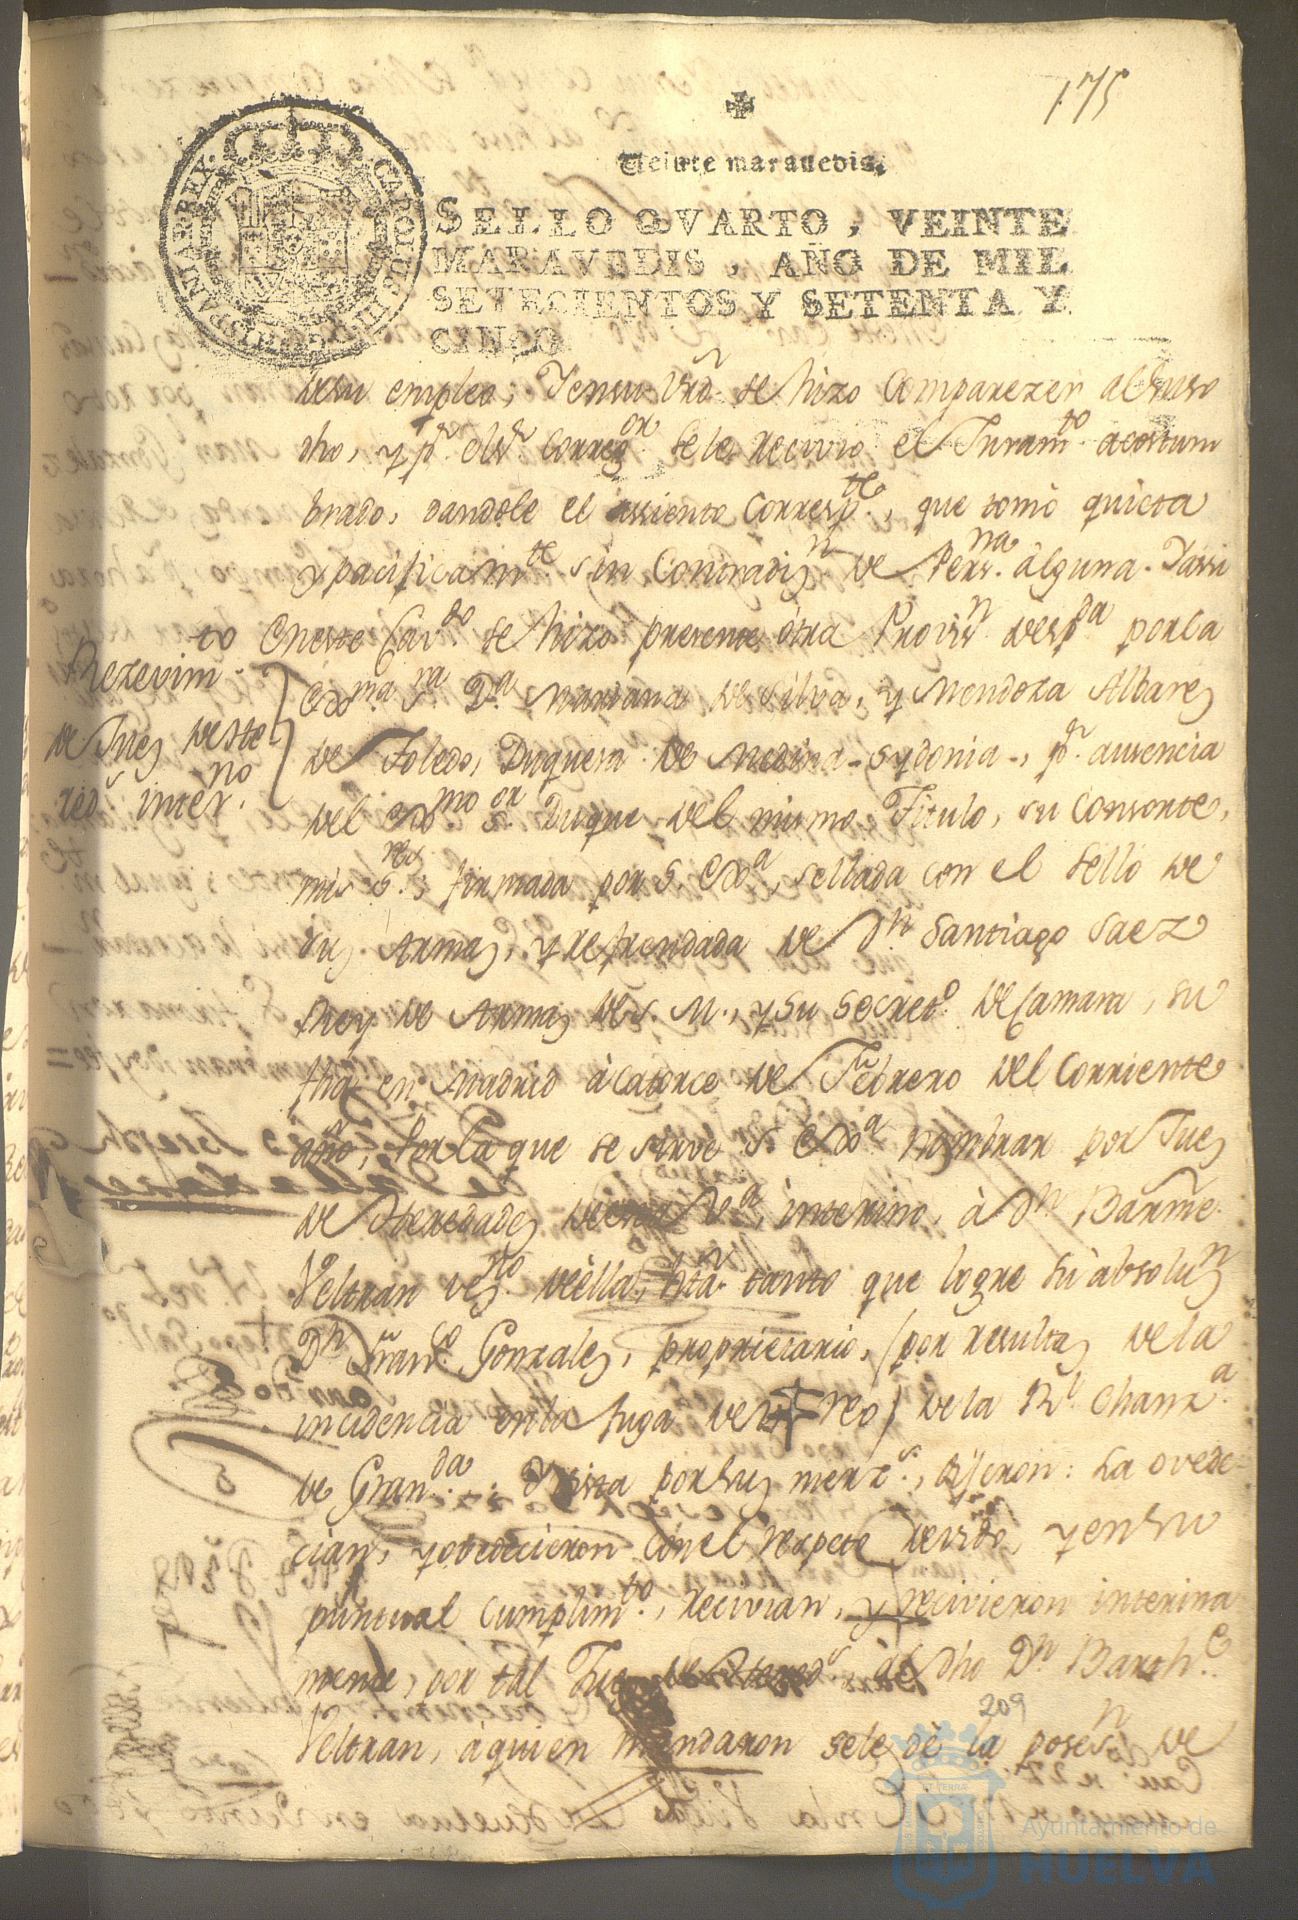 175
Veinte maravedis.
SELLO QVARTO, VEINTE
MARAVEDIS, AÑO DE MIL
SETECIENTOS Y SETENTA Y
CINCO.
CAROLUS III D G HISPANIAR REX
desu empleo; Yensu Vrd. se hizo Comparezer al suso
dho, y pr. el Sr. Corregor. se le recivio el Juramto. acostum
brado, dandole el assiento Correspte., que tomó quieta
ypacificamte. sin Contradizn. de Persna. alguna. Yassi
Eneste Cavdo. se hizo presente ótra Provisn. despda. porla
Rezevimto
de Juez de He
reds. interno.
Exma. Sra. Da. Mariana de Silva, y Mendoza Albarez
de Toledo, Duquesa de Medina-Sydonia, pr. ausencia
del Exmo. Sor. Duque del mismo Titulo, su Consorte,
mis Sres.; firmada por S. Exa., sellada con el sello de
sus Armas, y refrendada de Dn. Santiago Saez
Rey de Armas de S. M., y su Secreto. de Camara, su
fha en Madrid á catorce de Febrero del Corriente
año; Porla que se sirve S. Exa. nombrar por Juez
de Heredades de esta Va., interino, à Dn. Barme.
Veltran vezno. de élla, hta. tanto que logre su absoluzn.
Dn. Franco. Gonzales, proprietario, (por resultas de la
incidencia en la fuga de un Reo) de la Rl. Chanza.
de Granda.: Y vista por sus merzs., dijeron: La ovede-
cian, yobedecieron Con el respeto devido, y en su
puntual Cumplimto., recivian, y recivieron interina
mente, por tal Juez de Hereds., àl dho Dn. Barthe.
Veltran, á quien mandaron sele dé la posesn. de
209
Ayuntamiento de
HUELVA